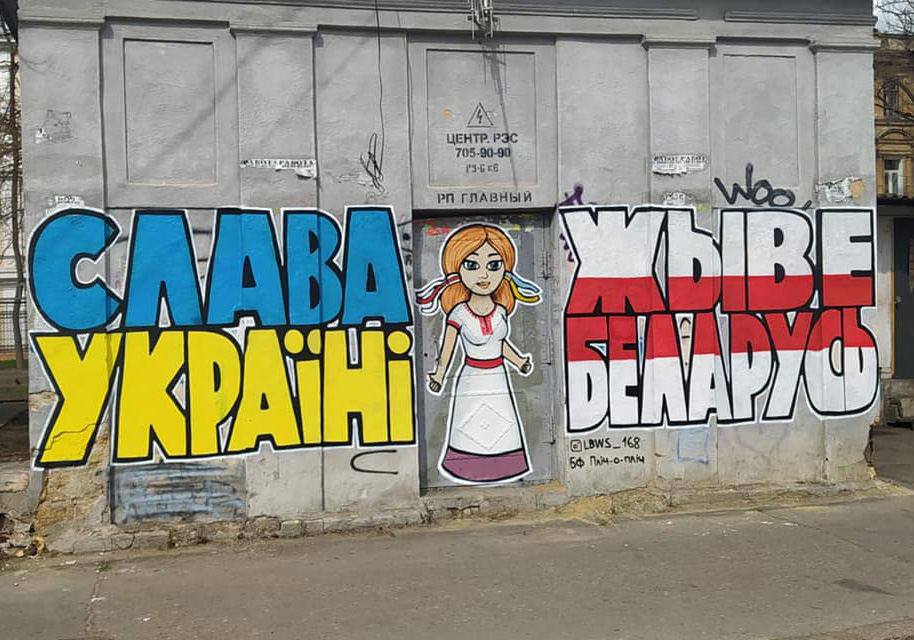 ЦЕНТР. РЭС
705-90-90
РП ГЛАВНЫЙ
Woo
СЛАВА
УКРАЇНІ
ЖЫВЕ
БЕЛАРУСЬ
LBWS_168
БФ Пліч-о-пліч